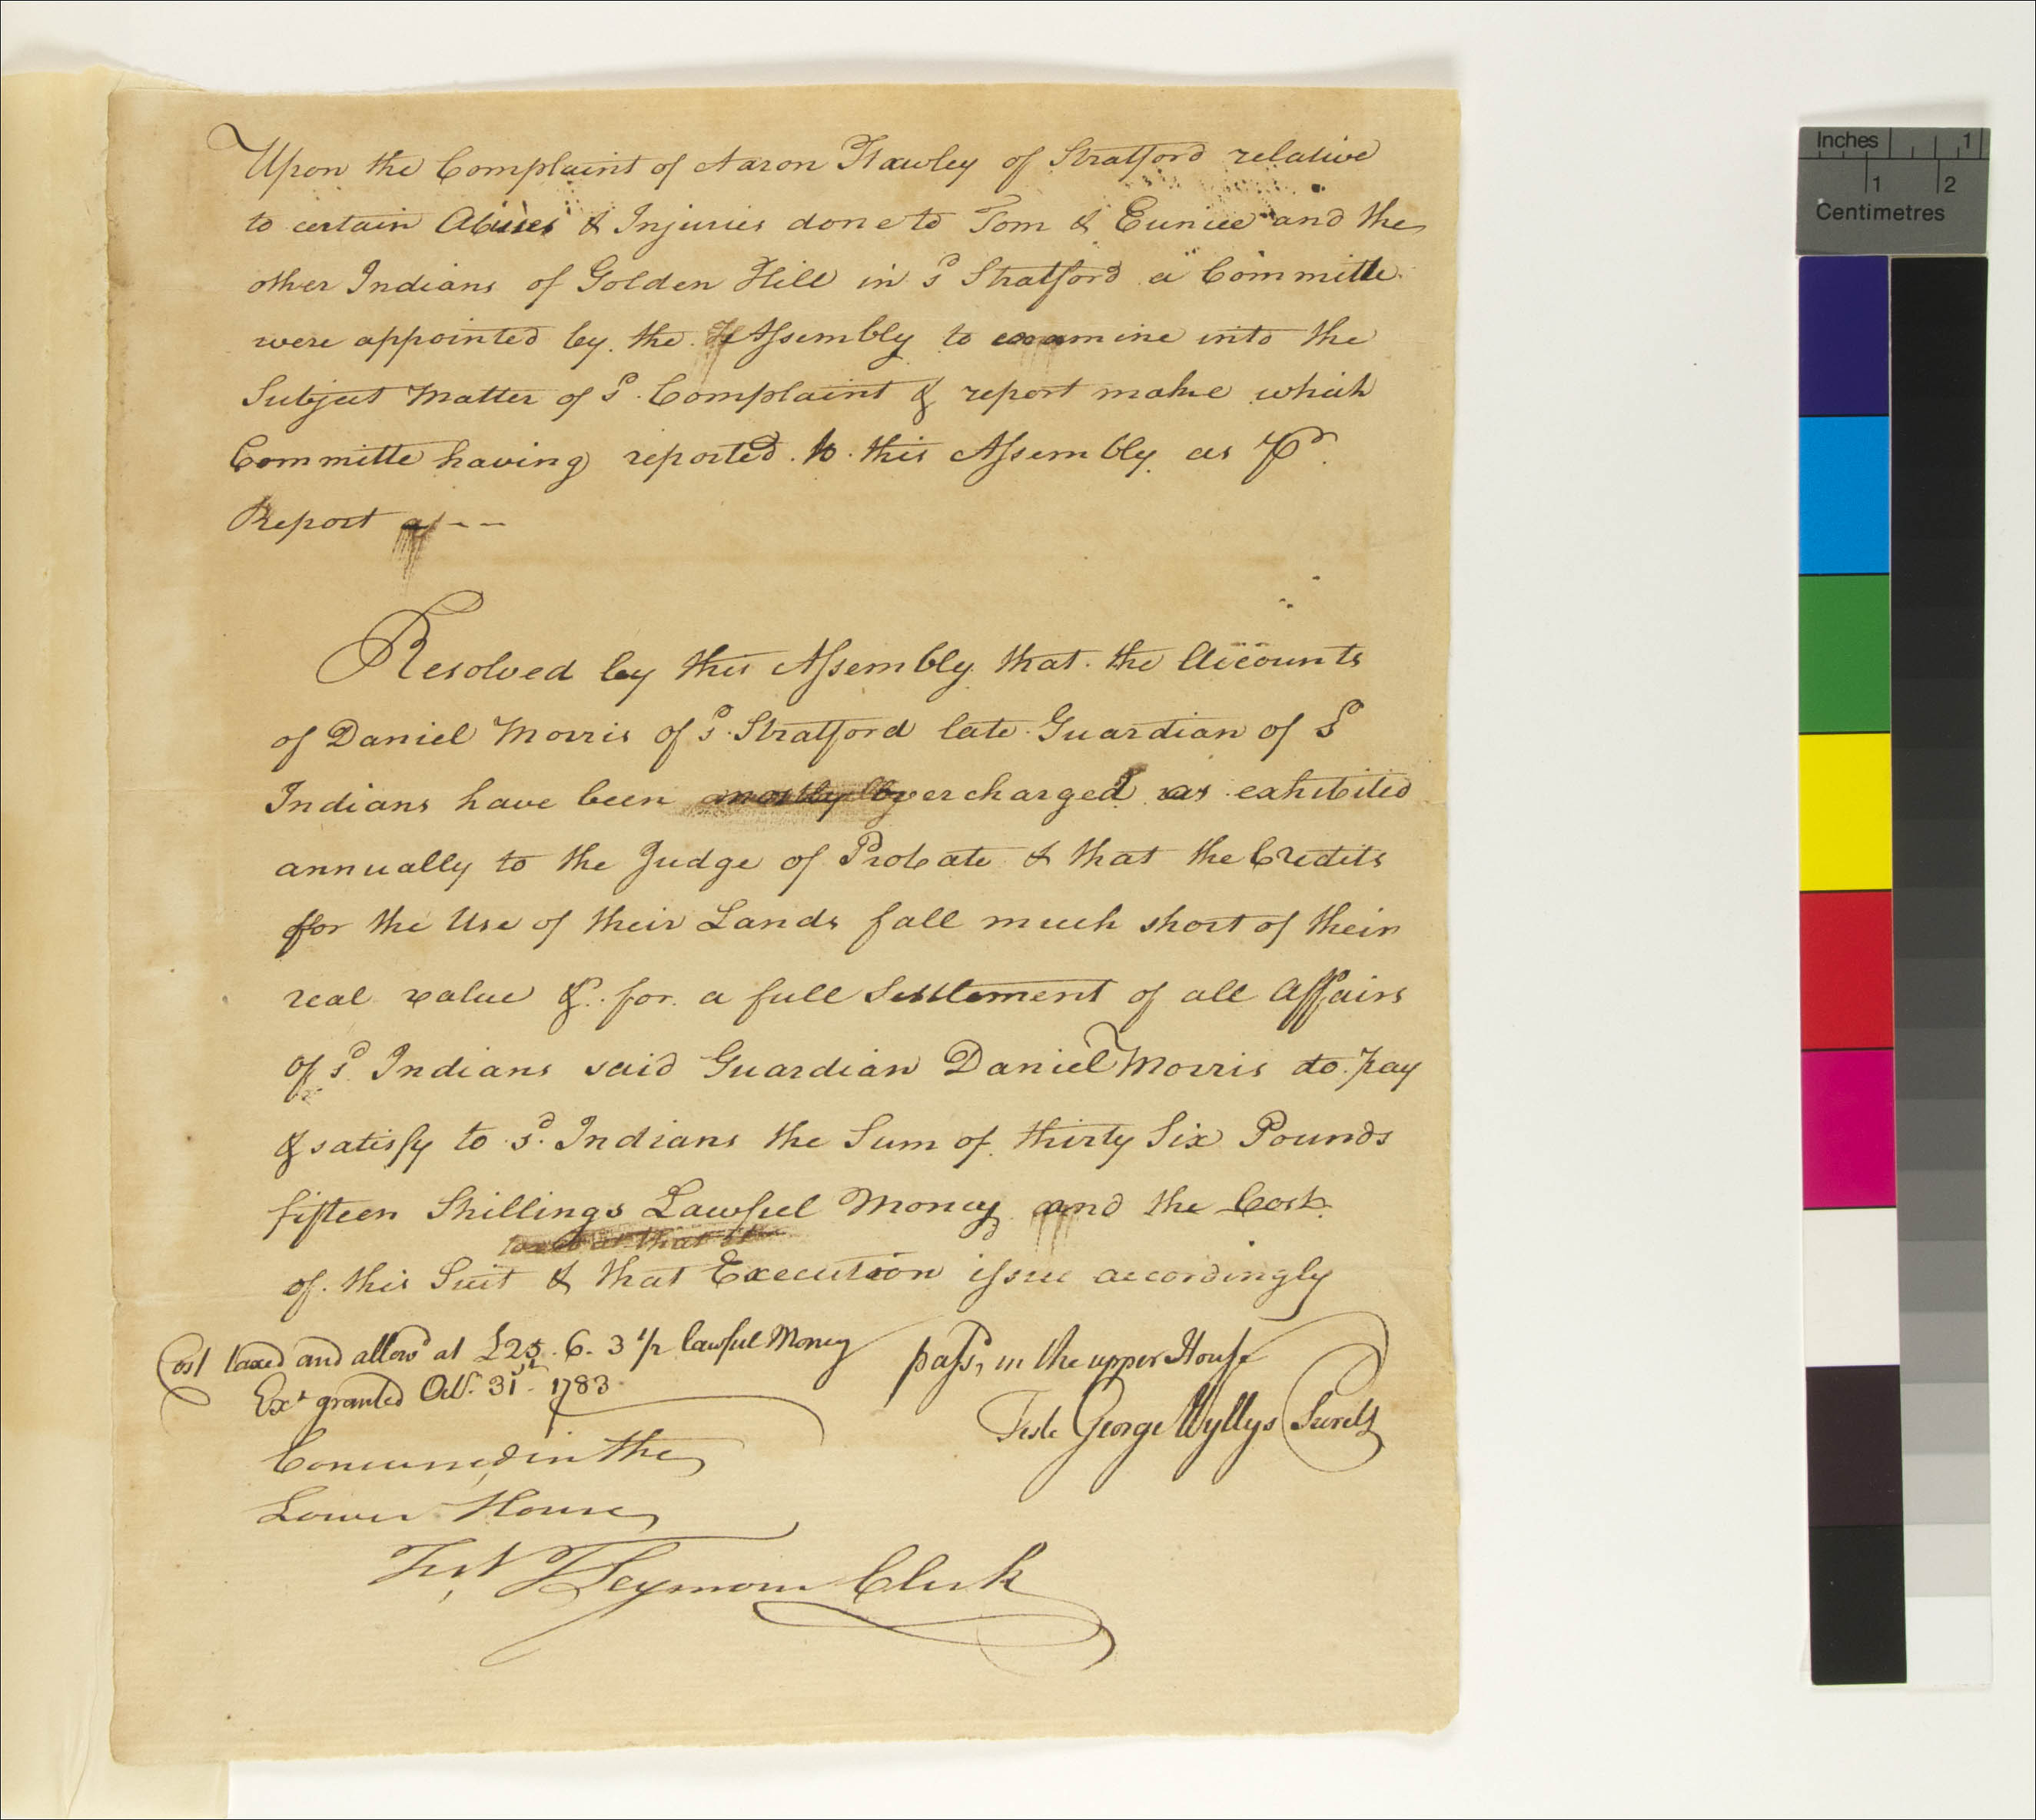 Upon the Complaint of Aaron Hawley of Stratford relative
to certain Abuses & Injuries done to Tom & Eunice and the
other Indians of Golden Hill in sd Stratford a Committe
were appointed by the Assembly to examine into the
Subject Matter of sd Complaint & report make which
Committe having reported to this Assembly as pr
Report
Resolved by this Assembly that the Accounts
of Daniel Morris of sd Stratford late Guardian of sd
Indians have been overcharged as exhibited
annually to the Judge of Probate & that the Credits
for the Use of their Lands fall much short of their
real value & for a full Settlement of all Affairs
of sd Indians said Guardian Daniel Morris do pay
& satisfy to sd Indians the Sum of thirty Six Pounds
fifteen Shillings Lawful Money and the Cost
of this Suit & that Execution issue accordingly
Cost taxed and allowd at £25. 6. 3 1/2 lawful Money
Ext granted Octr. 31st 1783
passd in the upper House
Teste George Wyllys Secrety
Concurred in the
Lower House
Test T Seymour Clerk
Inches 1
1 2
Centimetres